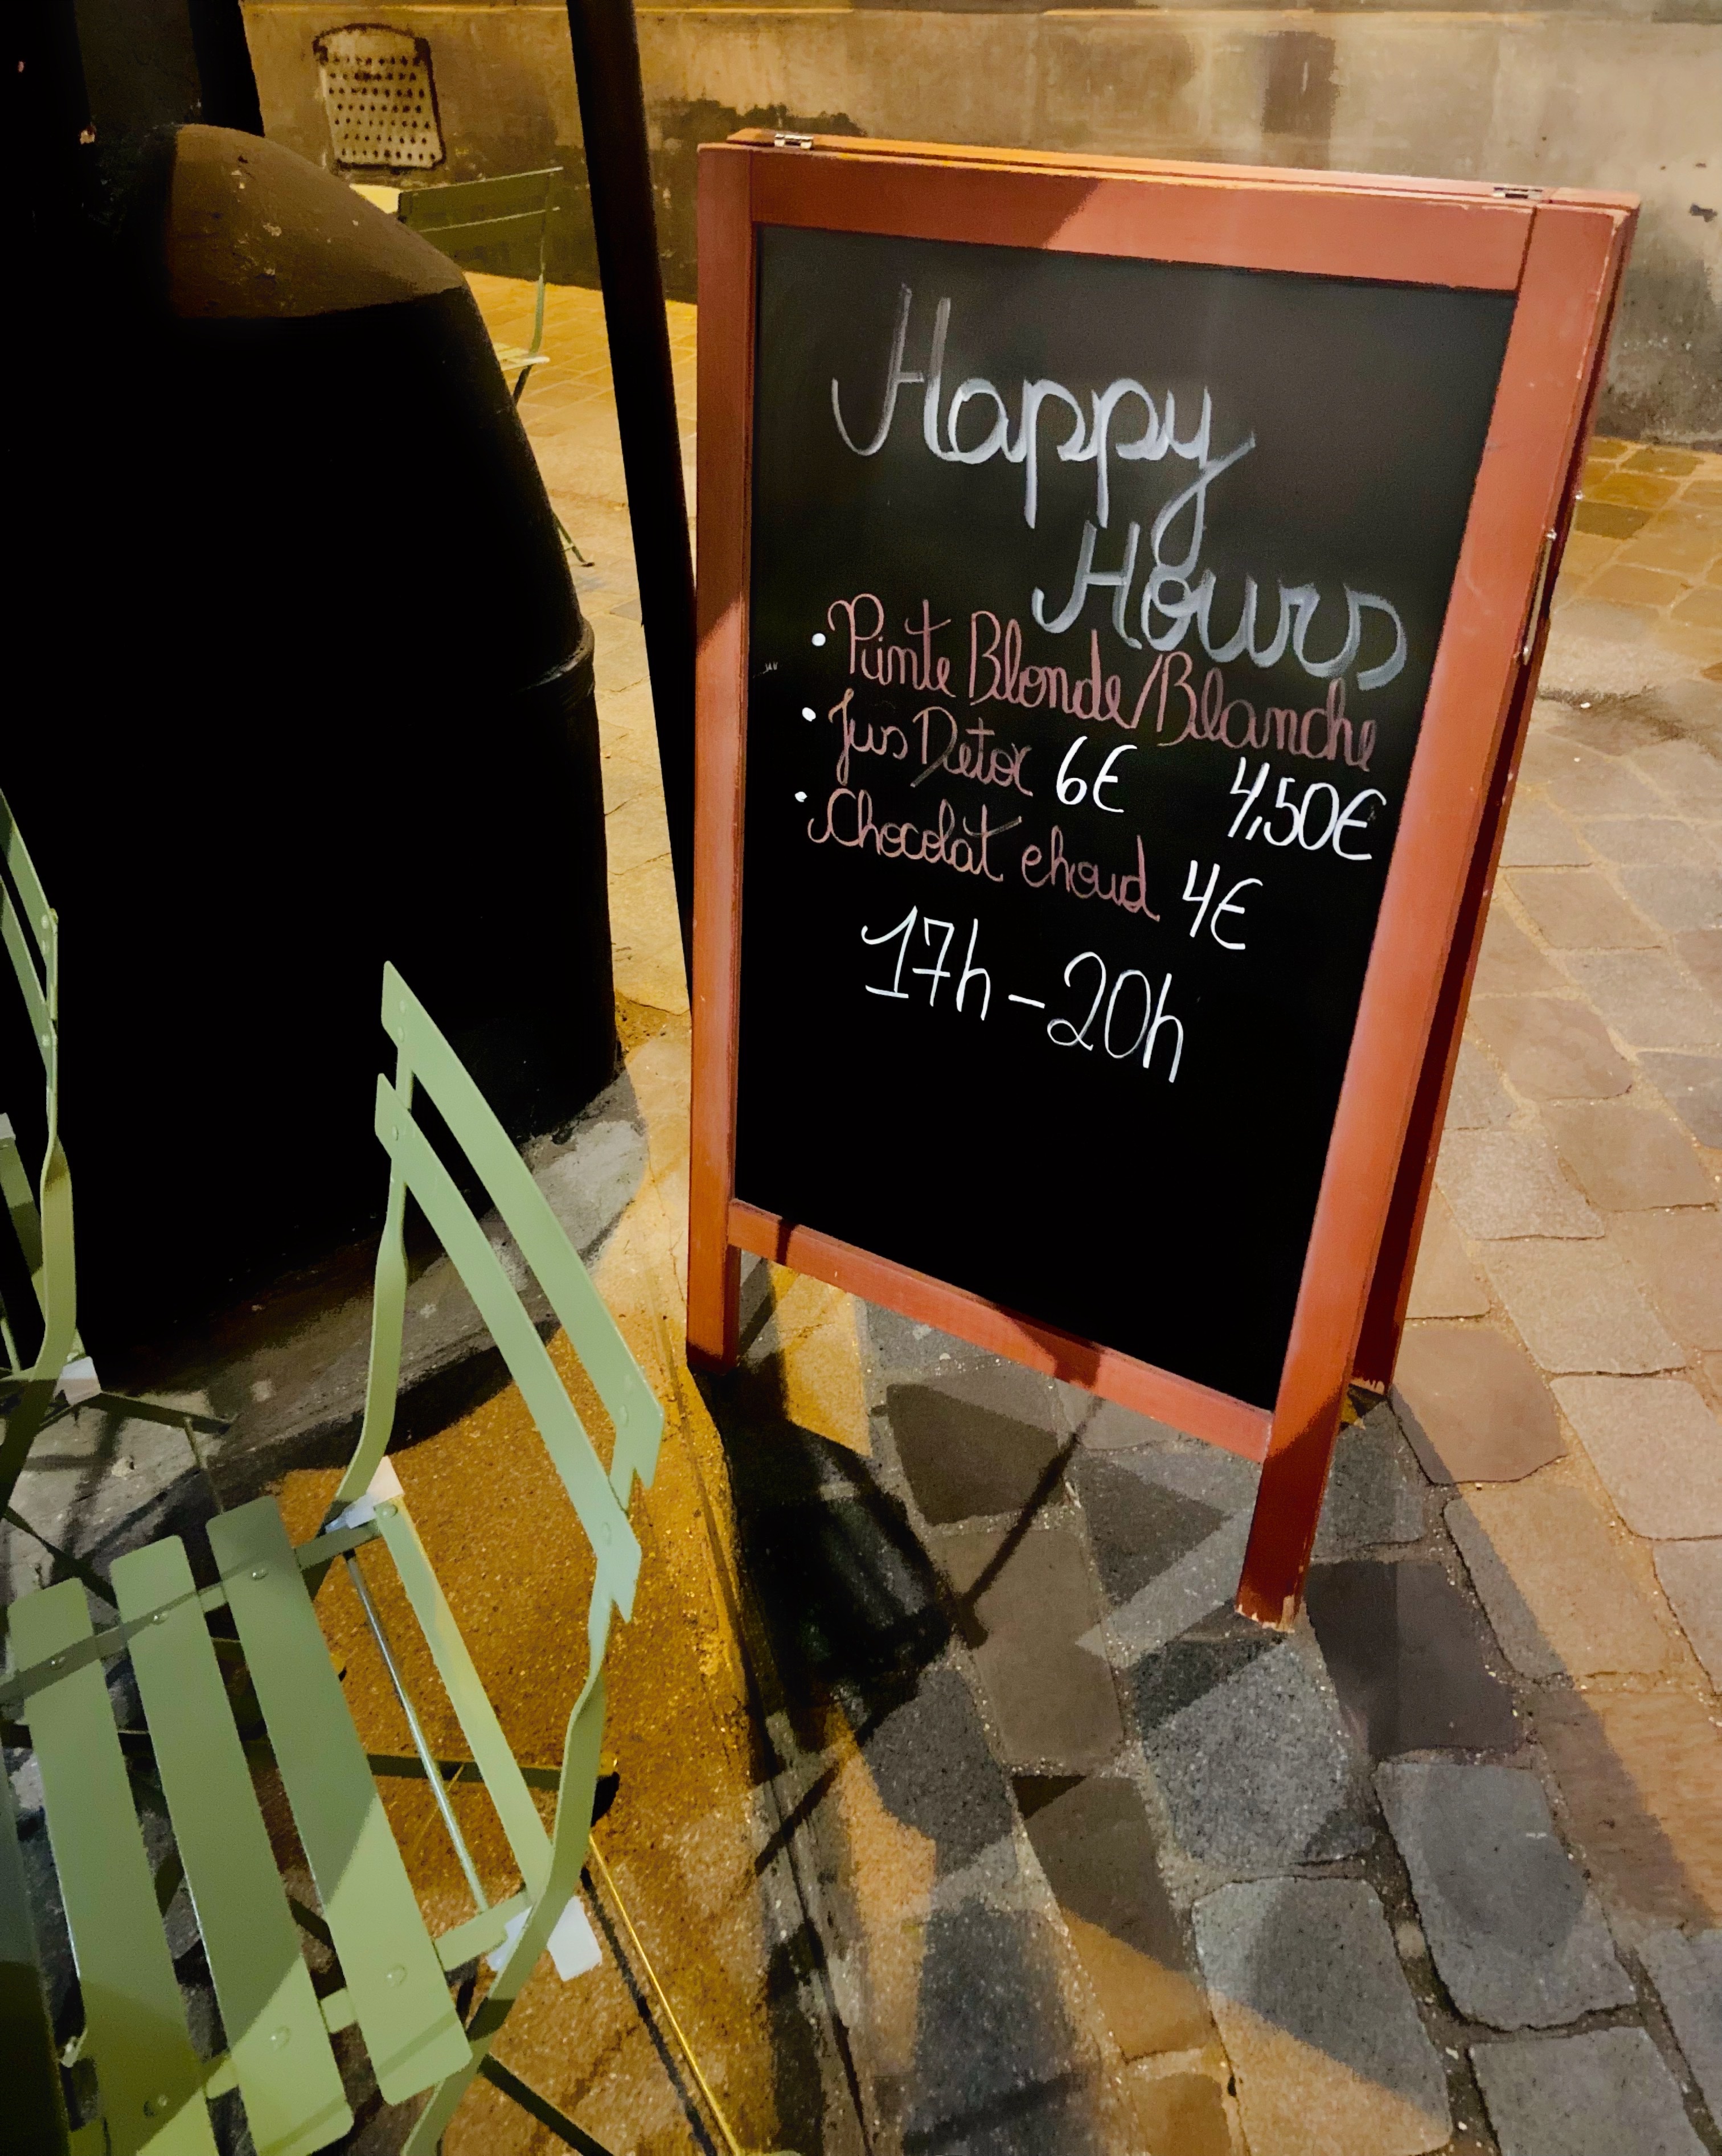 Happy
Hours
• Pinte Blonde/Blanche
4,50€
• Jus Detox 6€
• Chocolat chaud 4€
17h - 20h